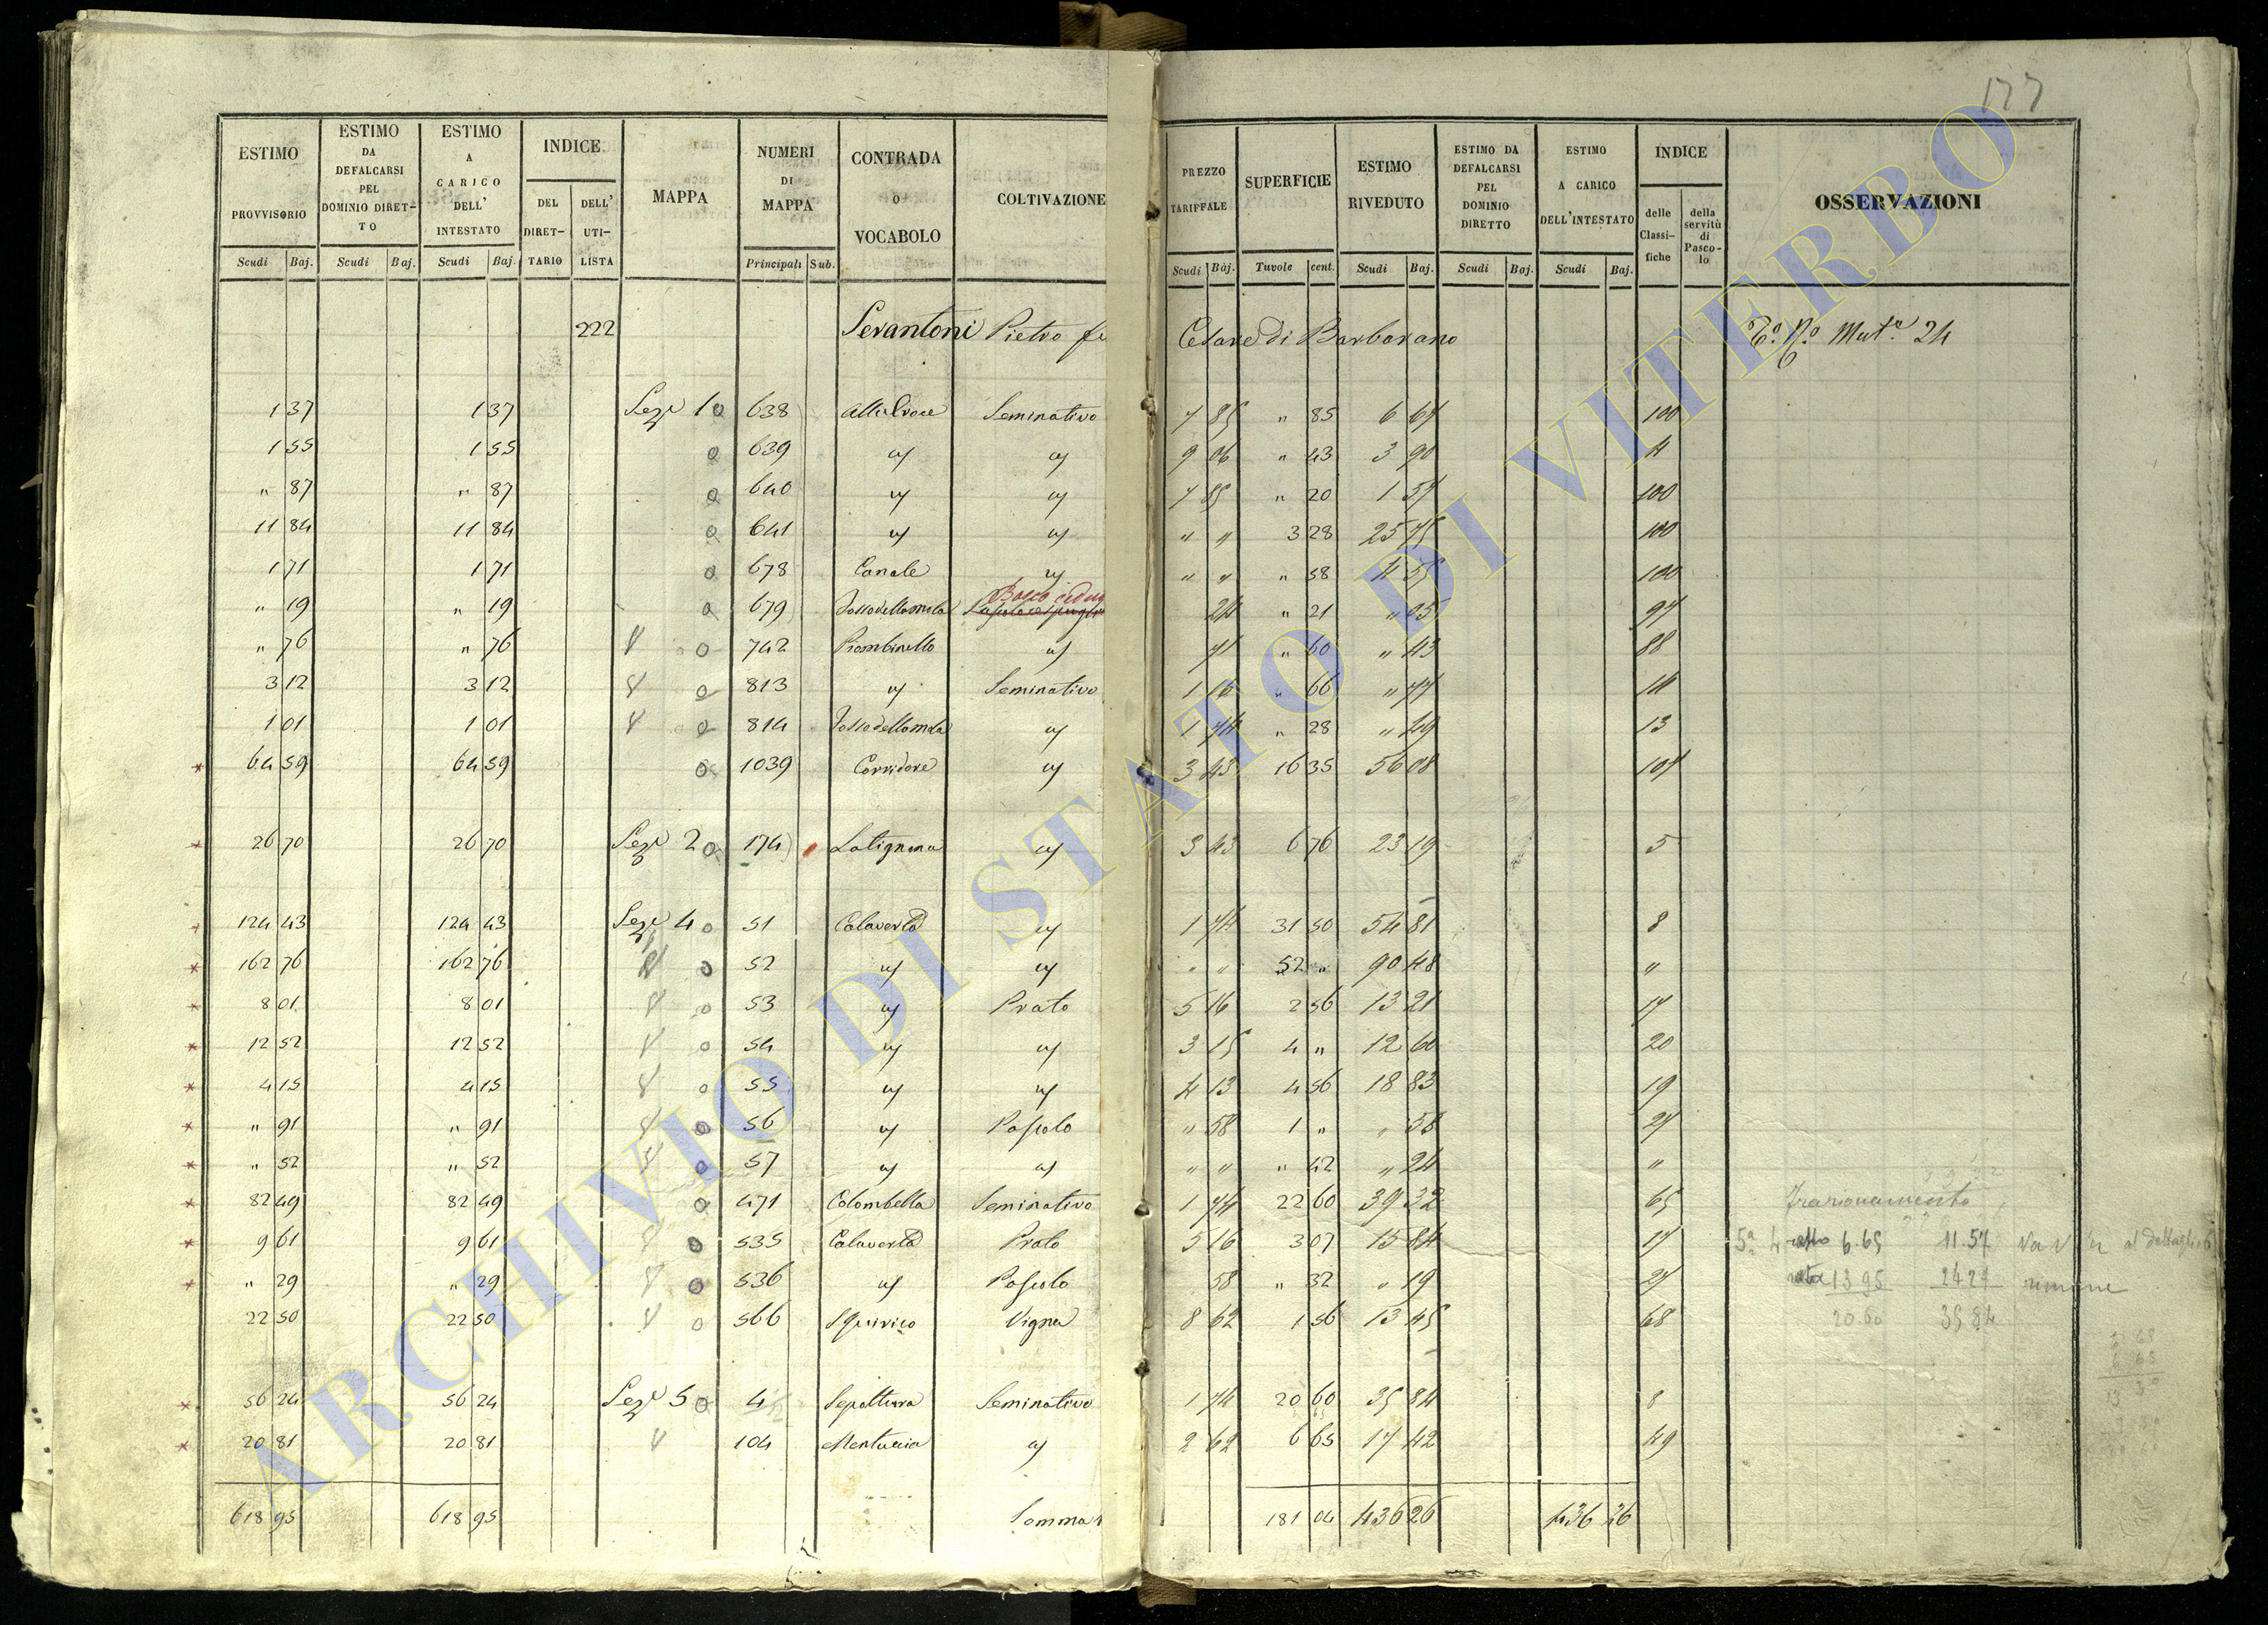 177
ESTIMO PROVVISORIO
ESTIMO DA DEFALCARSI PEL DOMINIO DIRET-TO
ESTIMO A CARICO DELL' INTESTATO
INDICE
DEL DIRET-TARIO
DELL' UTI-LISTA
MAPPA
NUMERI DI MAPPA
CONTRADA O VOCABOLO
COLTIVAZIONE
PREZZO TARIFFALE
SUPERFICIE
ESTIMO RIVEDUTO
ESTIMO DA DEFALCARSI PEL DOMINIO DIRETTO
ESTIMO A CARICO DELL'INTESTATO
INDICE
delle Classi-fiche
della servitù di Pasco-lo
OSSERVAZIONI
Scudi Baj. Scudi Baj. Scudi Baj. Principali Sub. Scudi Baj. Tavole cent. Scudi Baj. Scudi Baj. Scudi Baj.
222 Serantoni Pietro Cesare di Barbarano Mut.e 24
1 37 1 37 Sez.e 1 o 638 Alla Croce Seminativo 7 85 " 85 6 67 100
1 55 1 55 o 639 " " 9 06 " 43 3 90 4
" 87 " 87 o 640 " " 7 85 " 20 1 57 100
11 84 11 84 o 641 " " " " 3 28 25 75 100
1 71 1 71 o 678 Canale " " " " 58 4 55 100
" 19 " 19 o 679 Fosso della mola Bosco ceduo 24 " 21 " 05 97
" 76 " 76 o 742 Piombinello " 71 " 60 " 43 88
3 12 3 12 o 813 " Seminativo 1 16 " 66 " 77 14
1 01 1 01 o 814 Fosso della mola " 1 74 " 28 " 49 13
* 64 59 64 59 o 1039 Corridore " 3 43 16 35 56 08 107
* 26 70 26 70 Sez.e 2 o 174 Latignana " 3 43 6 76 23 19 5
* 124 43 124 43 Sez.e 4 o 51 Calaverla " 1 74 31 50 54 81 8
* 162 76 162 76 o 52 " " " " 52 " 90 48 "
* 8 01 8 01 o 53 " Prato 5 16 2 56 13 21 17
* 12 52 12 52 o 54 " " 3 15 4 " 12 60 20
* 4 15 4 15 o 55 " " 4 13 4 56 18 83 19
* " 91 " 91 o 56 " Pascolo " 58 1 " " 58 27
* " 52 " 52 o 57 " " " " " 42 " 24 "
* 82 49 82 49 o 471 Colombella Seminativo 1 74 22 60 39 32 65 Frazionamento
* 9 61 9 61 o 535 Calaverla Prato 5 16 3 07 15 84 17 6.65 11.57
* " 29 " 29 o 536 " Pascolo 58 " 32 " 19 27 13 95 24 27 rimane
22 50 22 50 o 566 S Quirico Vigna 8 62 1 56 13 45 68 20.60 35 84
* 56 24 56 24 Sez.e 5 o 4 Sepoltura Seminativo 1 74 20 60 35 84 8
* 20 81 20 81 104 Mentuccia " 2 62 6 65 17 42 49
618 95 618 95 Somma 181 04 436 26 436 26
ARCHIVIO DI STATO DI VITERBO